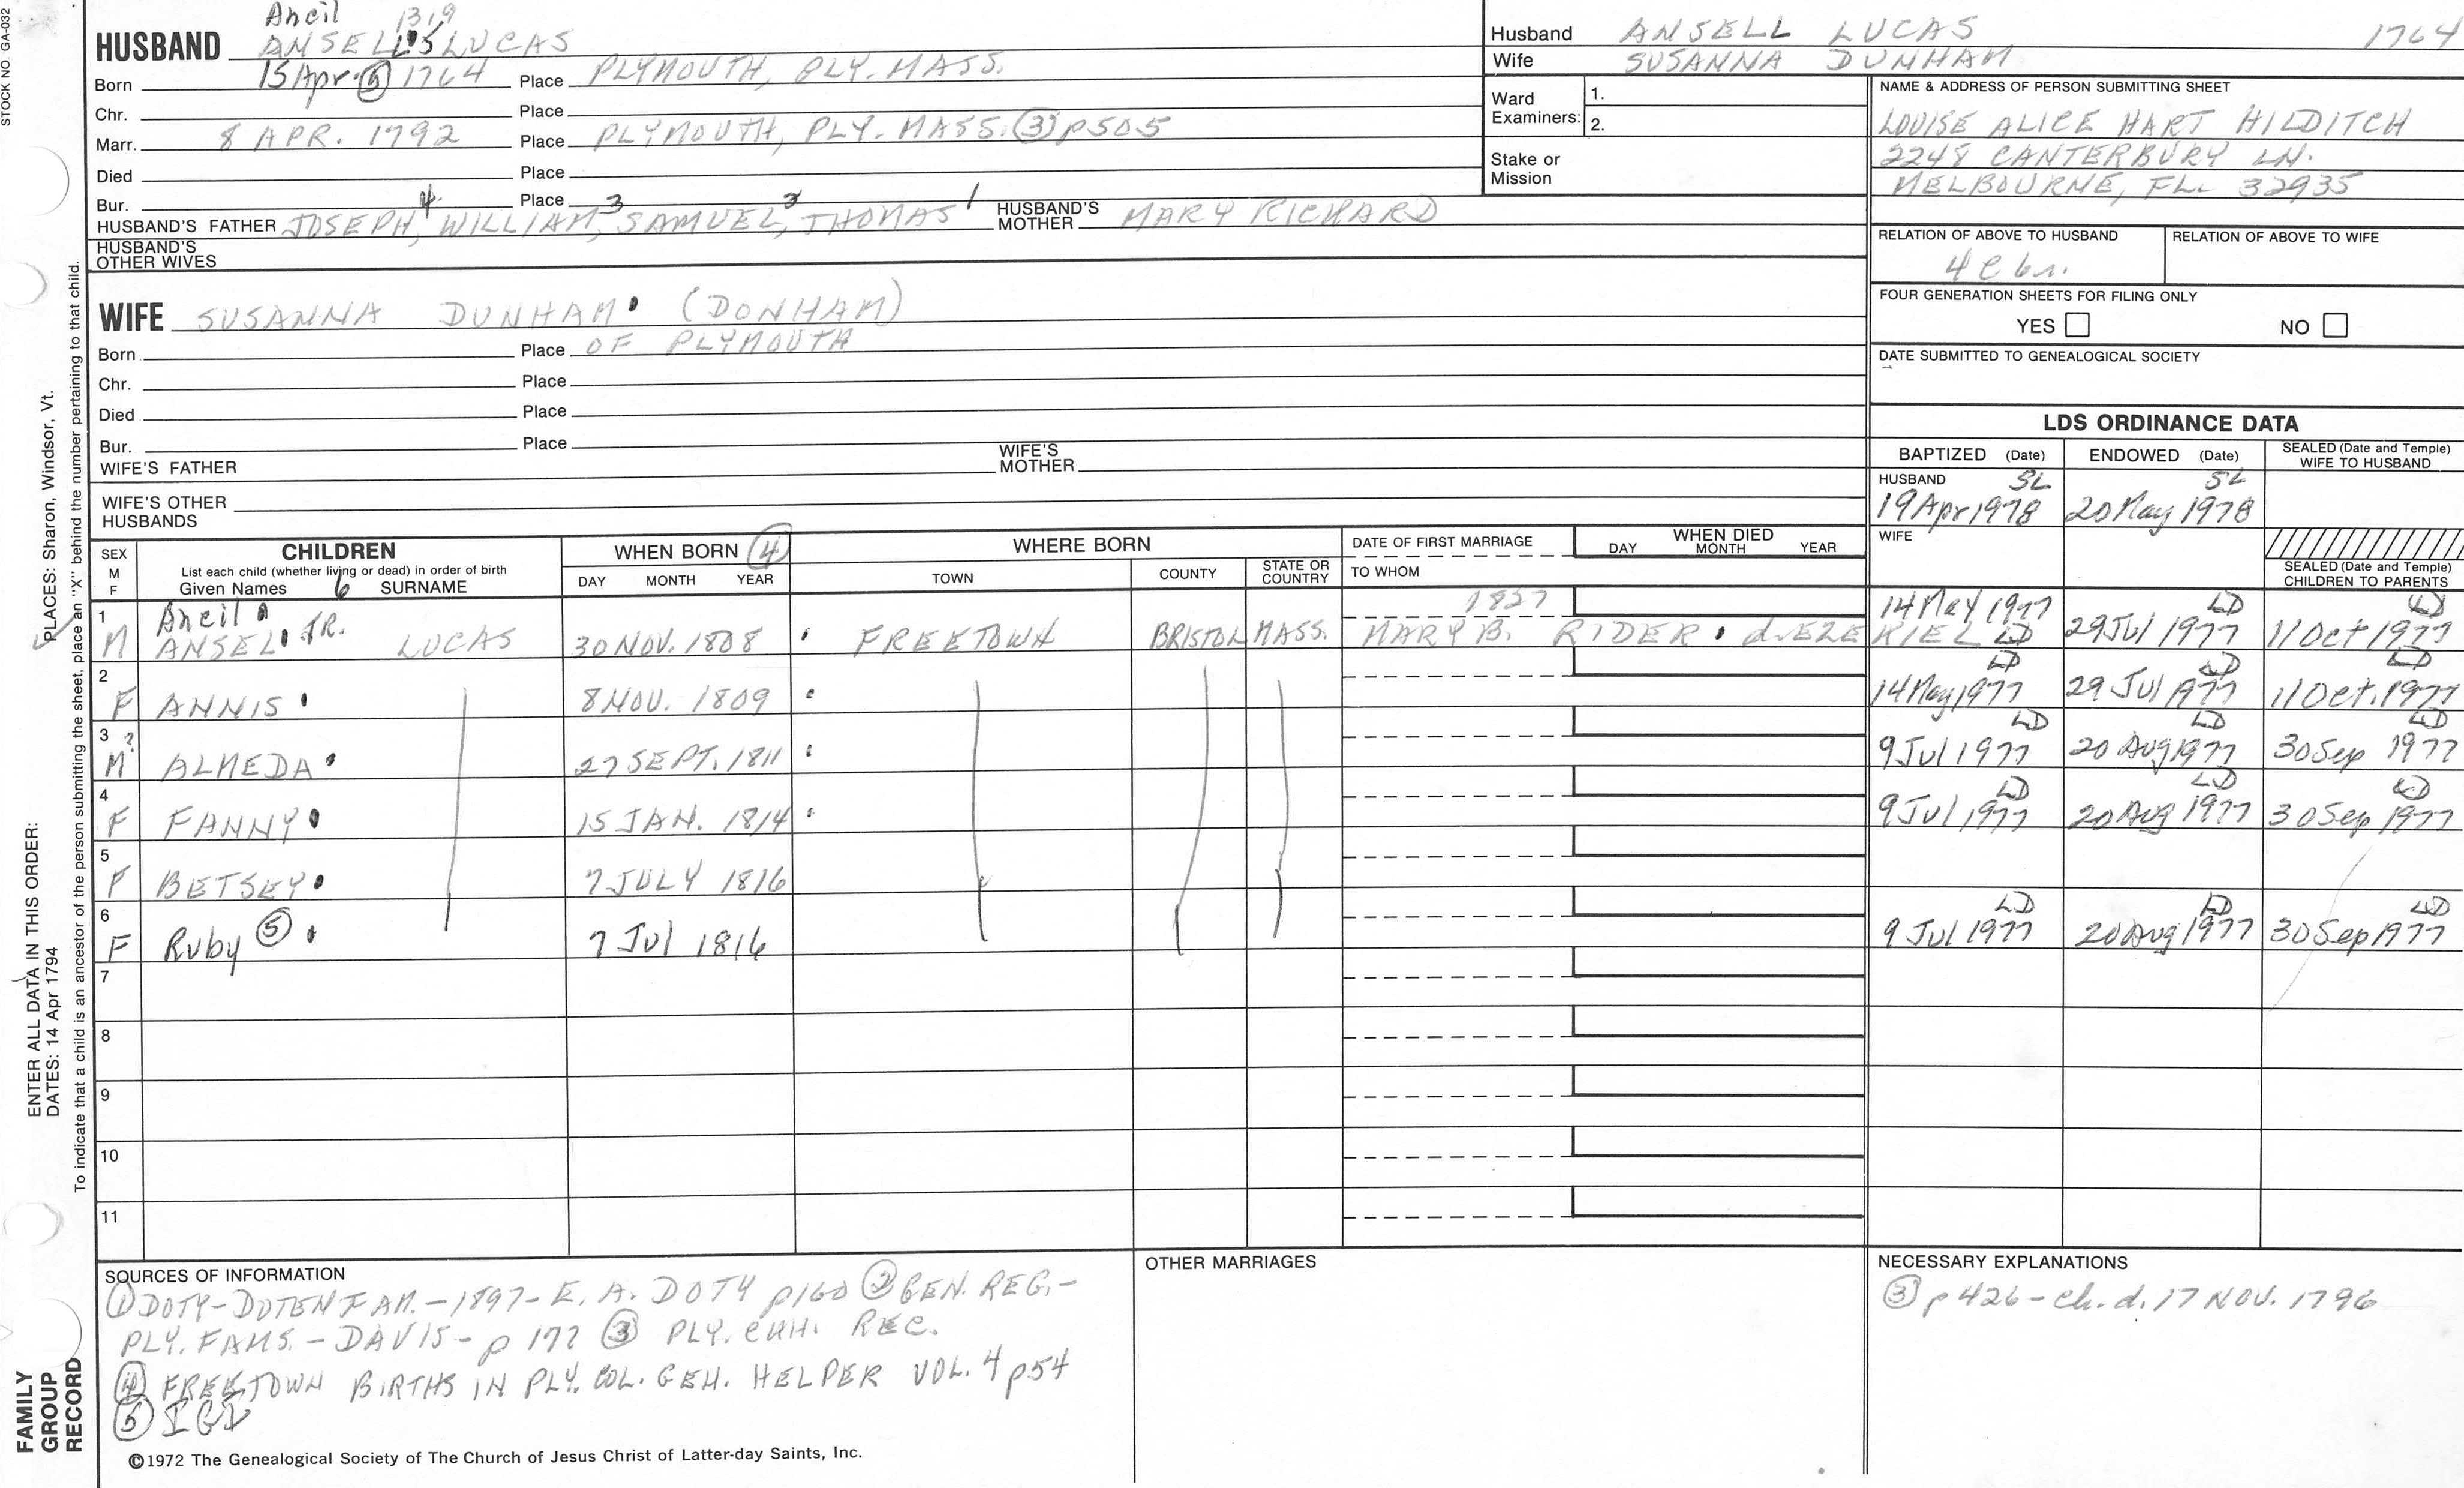 STOCK NO. GA-032
Ancil 1319
HUSBAND ANSELL LUCAS
Born 15 Apr ⑤ 1764 Place PLYMOUTH, PLY. MASS.
Chr. Place
Marr. 8 APR. 1792 Place PLYMOUTH, PLY. MASS. ③ p505
Died Place
Bur. Place
HUSBAND'S FATHER JOSEPH 4, WILLIAM 3, SAMUEL 2, THOMAS 1 HUSBAND'S MOTHER MARY RICKARD
HUSBAND'S OTHER WIVES
WIFE SUSANNA DUNHAM (DONHAM)
Born Place OF PLYMOUTH
Chr. Place
Died Place
Bur. Place
WIFE'S FATHER WIFE'S MOTHER
WIFE'S OTHER HUSBANDS
Husband ANSELL LUCAS 1764
Wife SUSANNA DUNHAM
Ward Examiners: 1.
2.
Stake or Mission
NAME & ADDRESS OF PERSON SUBMITTING SHEET
LOUISE ALICE HART HILDITCH
2248 CANTERBURY LN.
MELBOURNE, FL. 32935
RELATION OF ABOVE TO HUSBAND RELATION OF ABOVE TO WIFE
4C 6r.
FOUR GENERATION SHEETS FOR FILING ONLY
YES NO
DATE SUBMITTED TO GENEALOGICAL SOCIETY
LDS ORDINANCE DATA
BAPTIZED (Date) ENDOWED (Date) SEALED (Date and Temple) WIFE TO HUSBAND
HUSBAND SL SL
19 Apr 1978 20 May 1978
WIFE
SEALED (Date and Temple) CHILDREN TO PARENTS
SEX M F CHILDREN WHEN BORN ④ WHERE BORN DATE OF FIRST MARRIAGE WHEN DIED
List each child (whether living or dead) in order of birth
Given Names 6 SURNAME DAY MONTH YEAR TOWN COUNTY STATE OR COUNTRY TO WHOM DAY MONTH YEAR
1 Ancil 1837 14 May 1977 LD LD
M ANSEL JR. LUCAS 30 NOV. 1808 FREETOWN BRISTOL MASS. MARY B. RIDER d. EZEKIEL LD 29 Jul 1977 11 Oct 1977
2 LD LD LD
F ANNIS 8 NOV. 1809 14 May 1977 29 Jul 1977 11 Oct. 1977
3 ? LD LD LD
M ALMEDA 27 SEPT. 1811 9 Jul 1977 20 Aug 1977 30 Sep 1977
4 LD LD LD
F FANNY 15 JAN. 1814 9 Jul 1977 20 Aug 1977 30 Sep 1977
5
F BETSEY 7 JULY 1816
6 LD LD LD
F Ruby ⑤ 7 Jul 1816 9 Jul 1977 20 Aug 1977 30 Sep 1977
7
8
9
10
11
SOURCES OF INFORMATION
① DOTY-DOTEN FAM. - 1897 - E. A. DOTY p160 ② GEN. REG. -
PLY. FAMS. - DAVIS - p 177 ③ PLY. CHH. REC.
④ FREETOWN BIRTHS IN PLY. COL. GEN. HELPER VOL. 4 p54
⑤ IGI
OTHER MARRIAGES
NECESSARY EXPLANATIONS
③ p 426 - ch. d. 17 NOV. 1796
©1972 The Genealogical Society of The Church of Jesus Christ of Latter-day Saints, Inc.
FAMILY GROUP RECORD
ENTER ALL DATA IN THIS ORDER:
DATES: 14 Apr 1794
PLACES: Sharon, Windsor, Vt.
To indicate that a child is an ancestor of the person submitting the sheet, place an "X" behind the number pertaining to that child.